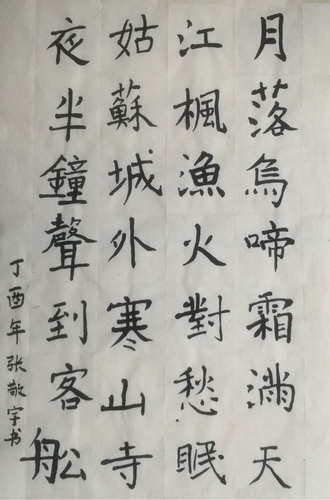 月落烏啼霜滿天
江楓漁火對愁眠
姑蘇城外寒山寺
夜半鐘聲到客舩
丁酉年张敬宇书